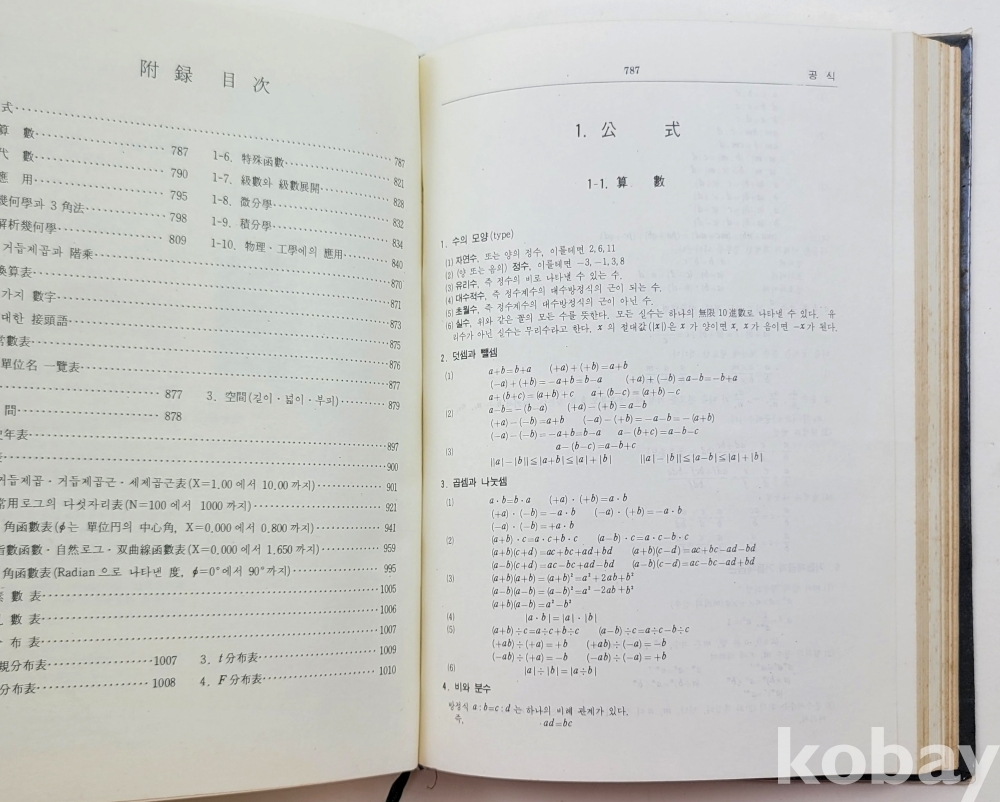 附 録 目 次
式 787
算 數 787
代 數 790
應 用 795
幾何學과 3 角法 798
解析幾何學 809
1-6. 特殊函數 821
1-7. 級數와 級數展開 828
1-8. 微分學 832
1-9. 積分學 834
1-10. 物理·工學에의 應用 840
거듭제곱과 階乘 870
換算表 871
가지 數字 873
대한 接頭語 875
常數表 876
單位名 一覽表 877
877
3. 空間(길이·넓이·부피) 879
間 878
年表 897
900
거듭제곱·거듭제곱근·세제곱근表(X=1.00 에서 10.00 까지) 901
常用로그의 다섯자리表(N=100 에서 1000 까지) 921
角函數表(ϕ는 單位円의 中心角, X=0.000 에서 0.800 까지) 941
指數函數·自然로그·双曲線函數表(X=0.000 에서 1.650 까지) 959
角函數表(Radian 으로 나타낸 度, ϕ=0°에서 90°까지) 995
數 表 1005
數 表 1006
布 表 1007
規分布表 1007
3. t分布表 1009
分布表 1008
4. F分布表 1010
787
공 식
1. 公 式
1-1. 算 數
1. 수의 모양(type)
(1) 자연수, 또는 양의 정수, 이를테면 2, 6, 11
(2) (양 또는 음의) 정수, 이를테면 −3, −1, 3, 8
(3) 유리수, 즉 정수의 비로 나타낼 수 있는 수.
(4) 대수적수, 즉 정수계수의 대수방정식의 근이 되는 수.
(5) 초월수, 즉 정수계수의 대수방정식의 근이 아닌 수.
(6) 실수, 위와 같은 꼴의 모든 수를 뜻한다. 모든 실수는 하나의 無限 10 進數로 나타낼 수 있다. 유
리수가 아닌 실수는 무리수라고 한다. x 의 절대값(|x|)은 x 가 양이면 x, x 가 음이면 −x가 된다.
2. 덧셈과 뺄셈
(1) a+b=b+a (+a)+(+b)=a+b
(−a)+(+b)=−a+b=b−a (+a)+(−b)=a−b=−b+a
a+(b+c)=(a+b)+c a+(b−c)=(a+b)−c
(2) a−b=−(b−a) (+a)−(+b)=a−b
(+a)−(−b)=a+b (−a)−(+b)=−a−b=−(a+b)
(−a)−(−b)=−a+b=b−a a−(b+c)=a−b−c
(3) a−(b−c)=a−b+c
||a|−|b||≦|a+b|≦|a|+|b| ||a|−|b||≦|a−b|≦|a|+|b|
3. 곱셈과 나눗셈
(1) a·b=b·a (+a)·(+b)=a·b
(+a)·(−b)=−a·b (−a)·(+b)=−a·b
(−a)·(−b)=+a·b
(2) (a+b)·c=a·c+b·c (a−b)·c=a·c−b·c
(a+b)(c+d)=ac+bc+ad+bd (a+b)(c−d)=ac+bc−ad−bd
(a−b)(c+d)=ac−bc+ad−bd (a−b)(c−d)=ac−bc−ad+bd
(3) (a+b)(a+b)=(a+b)²=a²+2ab+b²
(a−b)(a−b)=(a−b)²=a²−2ab+b²
(a+b)(a−b)=a²−b²
(4) |a·b|=|a|·|b|
(5) (a+b)÷c=a÷c+b÷c (a−b)÷c=a÷c−b÷c
(+ab)÷(+a)=+b (+ab)÷(−a)=−b
(−ab)÷(+a)=−b (−ab)÷(−a)=+b
(6) |a|÷|b|=|a÷b|
4. 비와 분수
방정식 a:b=c:d 는 하나의 비례 관계가 있다.
즉, ad=bc
kobay